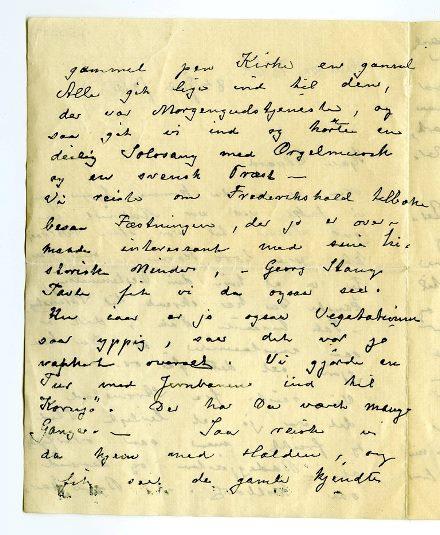 gammel pen Kirke en gammel
Alle gik lige ind til den,
der var Morgengudstjeneste, og
saa gik vi ind og hørte en
deilig Solosang med Orgelmusik
og en svensk Præst —
Vi reiste om Frederikshald tilbake
besaa Fæstningen, der jo er over-
maade interessant med sine hi-
storiske Minder, — Georg Stang
fik vi da ogsaa see.
Nu iaar er jo ogsaa Vegetationen
saa yppig, saa det var jo
vakkert overalt. Vi gjorde en
Tur med Jernbanen ind til
Kornsjö. Der har Du været mange
Gange. — Saa reiste vi
da hjem med Halden, og
fik see de gamle kjendte